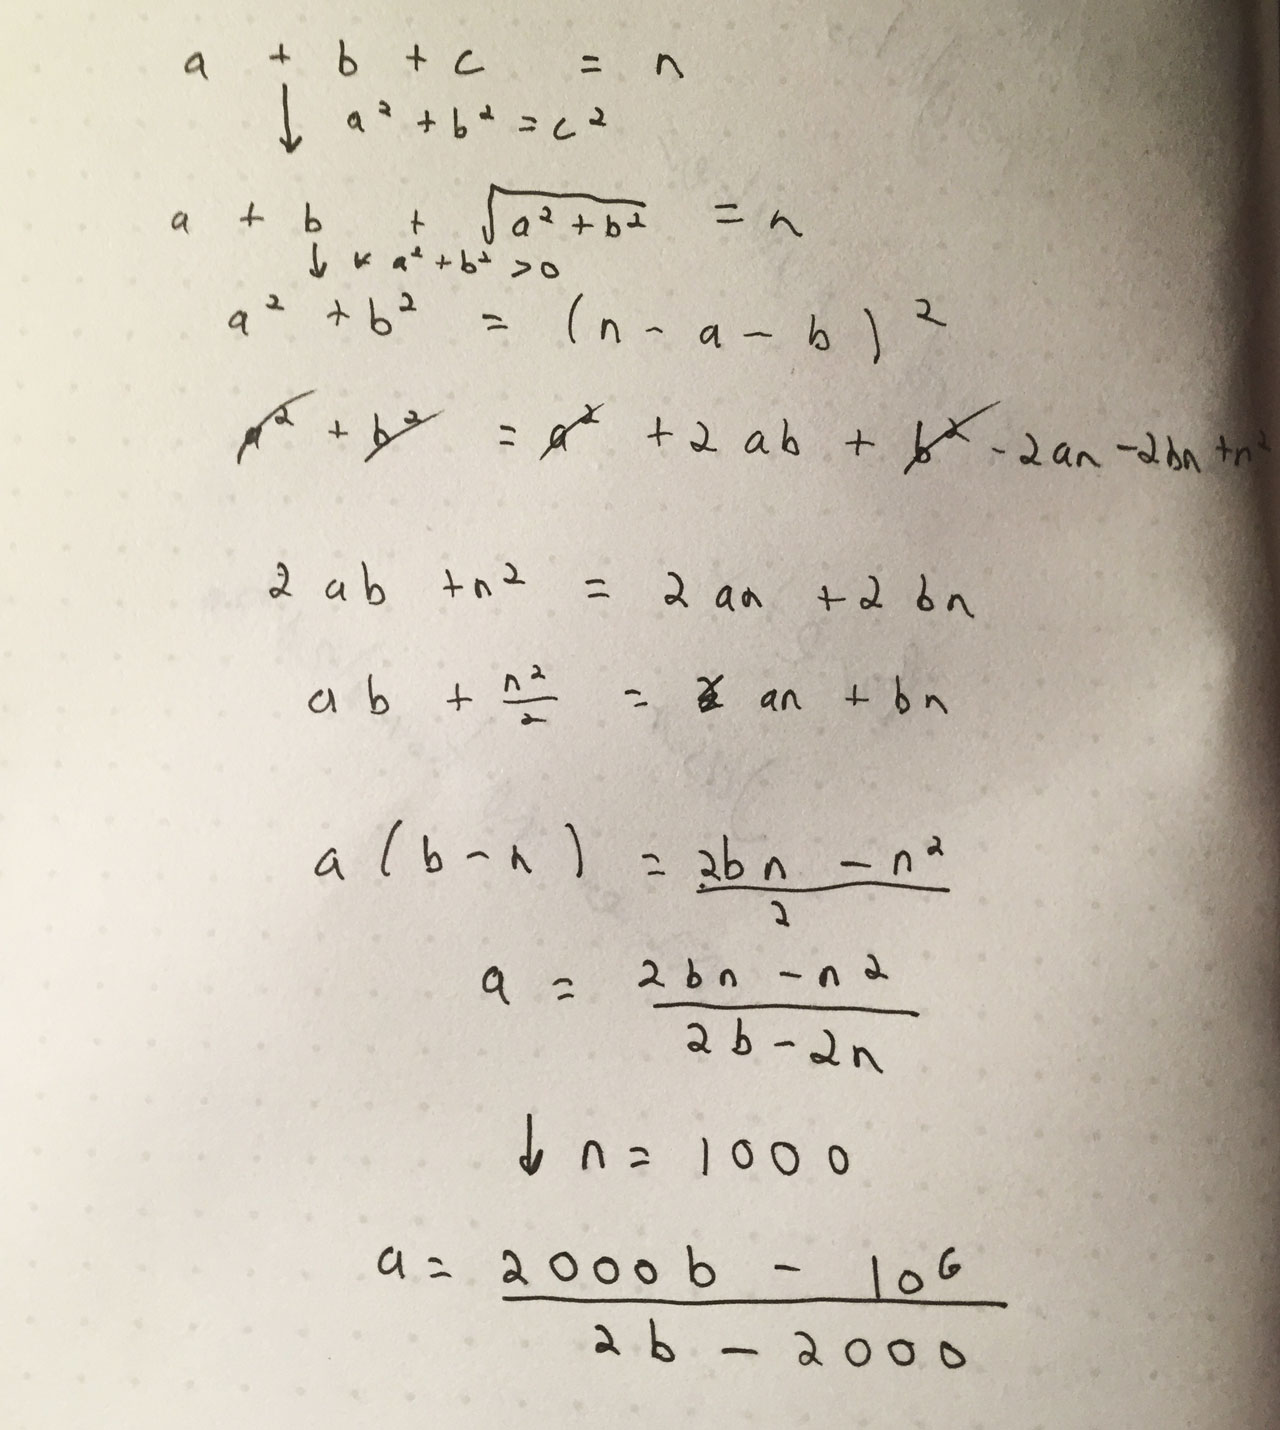 a + b + c = n
↓ a² + b² = c²
a + b + √(a² + b²) = n
↓ a² + b² > 0
a² + b² = (n - a - b)²
a² + b² = a² + 2ab + b² - 2an - 2bn + n²
2ab + n² = 2an + 2bn
ab + n²/2 = an + bn
a(b - n) = (2bn - n²)/2
a = (2bn - n²)/(2b - 2n)
↓ n = 1000
a = (2000b - 10⁶)/(2b - 2000)